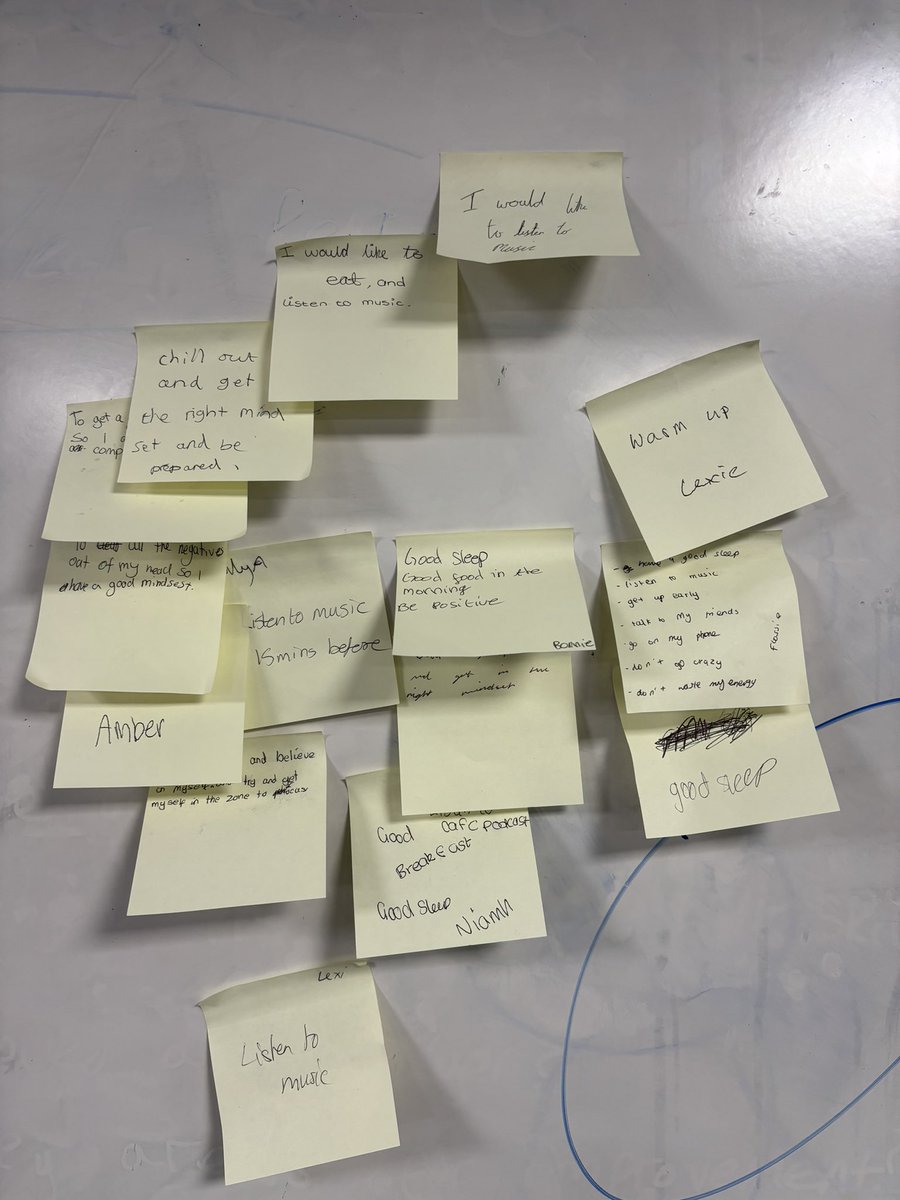 I would like
to listen to
music
I would like to
eat, and
listen to music.
chill out
and get
the right mind
set and be
prepared.
To get a
So I
comp
warm up
Lexie
To all the negative
out of my head so I
have a good mindset.
Mya
Listen to music
15 mins before
Good sleep
Good food in the
morning
Be Positive
Bonnie
- have a good sleep
- listen to music
- get up early
- talk to my friends
- go on my phone
- don't go crazy
- don't waste my energy
Flossie
Amber
and get in the
right mindset
good sleep
and believe
in myself try and get
myself in the zone to focus
Good cafe podcast
Breakfast
Good Sleep
Niamh
Lexi
Listen to
music